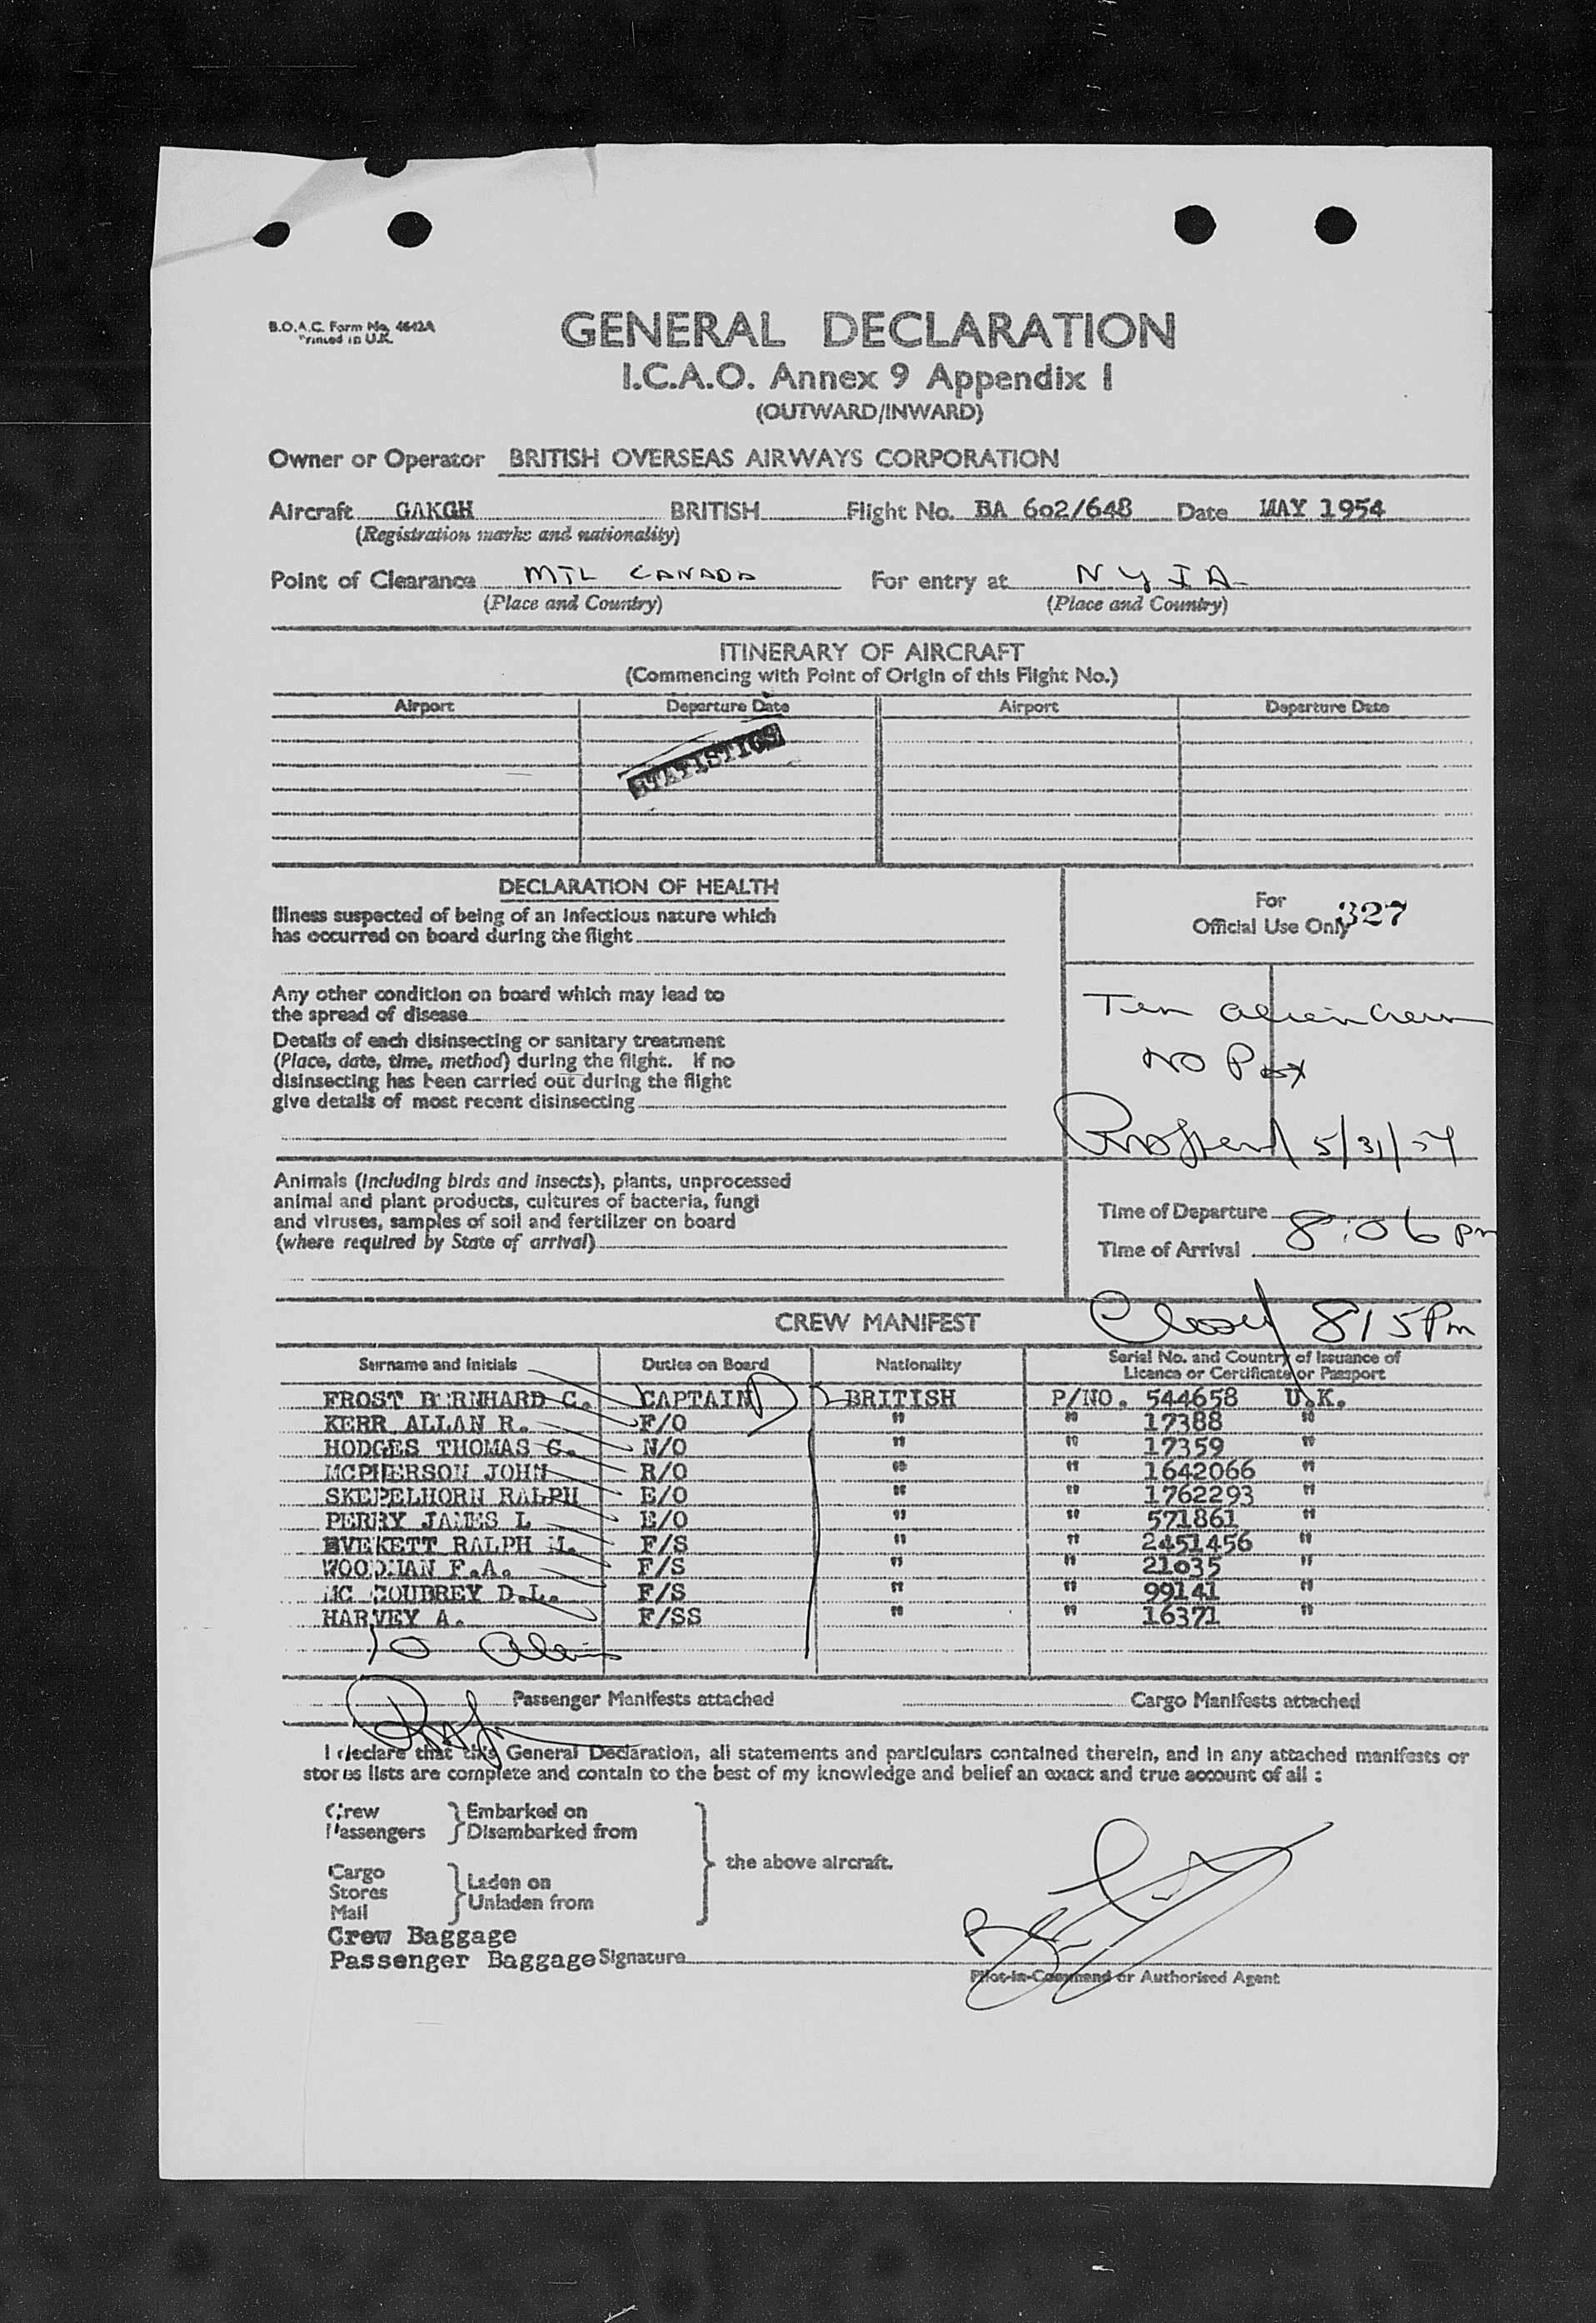 B.O.A.C. Form No. 4642A
Printed in U.K.
GENERAL DECLARATION
I.C.A.O. Annex 9 Appendix I
(OUTWARD/INWARD)
Owner or Operator BRITISH OVERSEAS AIRWAYS CORPORATION
Aircraft GAKGH BRITISH Flight No. BA 602/648 Date MAY 1954
(Registration marks and nationality)
Point of Clearance MTL CANADA For entry at NYIA
(Place and Country) (Place and Country)
ITINERARY OF AIRCRAFT
(Commencing with Point of Origin of this Flight No.)
Airport Departure Date Airport Departure Date
STATISTICS
DECLARATION OF HEALTH
Illness suspected of being of an infectious nature which
has occurred on board during the flight
For
Official Use Only 327
Any other condition on board which may lead to
the spread of disease
Ten alien crew
Details of each disinsecting or sanitary treatment
(Place, date, time, method) during the flight. If no
disinsecting has been carried out during the flight
give details of most recent disinsecting
No Pax
5/31/54
Animals (including birds and insects), plants, unprocessed
animal and plant products, cultures of bacteria, fungi
and viruses, samples of soil and fertilizer on board
(where required by State of arrival)
Time of Departure
Time of Arrival 8:06 pm
Closed 815 Pm
CREW MANIFEST
Surname and Initials Duties on Board Nationality Serial No. and Country of Issuance of
Licence or Certificate or Passport
FROST BERNHARD C. CAPTAIN BRITISH P/NO. 544658 U.K.
KERR ALLAN R. F/O " " 17388 "
HODGES THOMAS G. N/O " " 17359 "
MCPHERSON JOHN R/O " " 1642066 "
SKEPELHORN RALPH E/O " " 1762293 "
PERRY JAMES L E/O " " 571861 "
EVEKETT RALPH M. F/S " " 2451456 "
WOODMAN F.A. F/S " " 21035 "
MC COUBREY D.L. F/S " " 99141 "
HARVEY A. F/SS " " 16371 "
10 Aliens
Passenger Manifests attached Cargo Manifests attached
I declare that this General Declaration, all statements and particulars contained therein, and in any attached manifests or
stores lists are complete and contain to the best of my knowledge and belief an exact and true account of all :
Crew Embarked on
Passengers Disembarked from
the above aircraft.
Cargo
Stores Laden on
Mail Unladen from
Crew Baggage
Passenger Baggage Signature
Pilot-in-Command or Authorised Agent